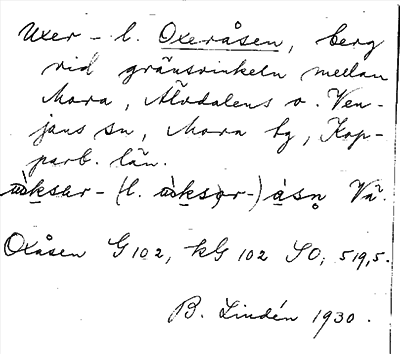 Uxer - l. Oxeråsen, berg
vid gränsvinkeln mellan
Mora, Älvdalens o. Ven-
jans sn, Mora tg, Kop-
parb. län.
(l.) åsn Vä.
Oxåsen G 102, kG 102 SO; 519,5.
B. Lindén 1930.